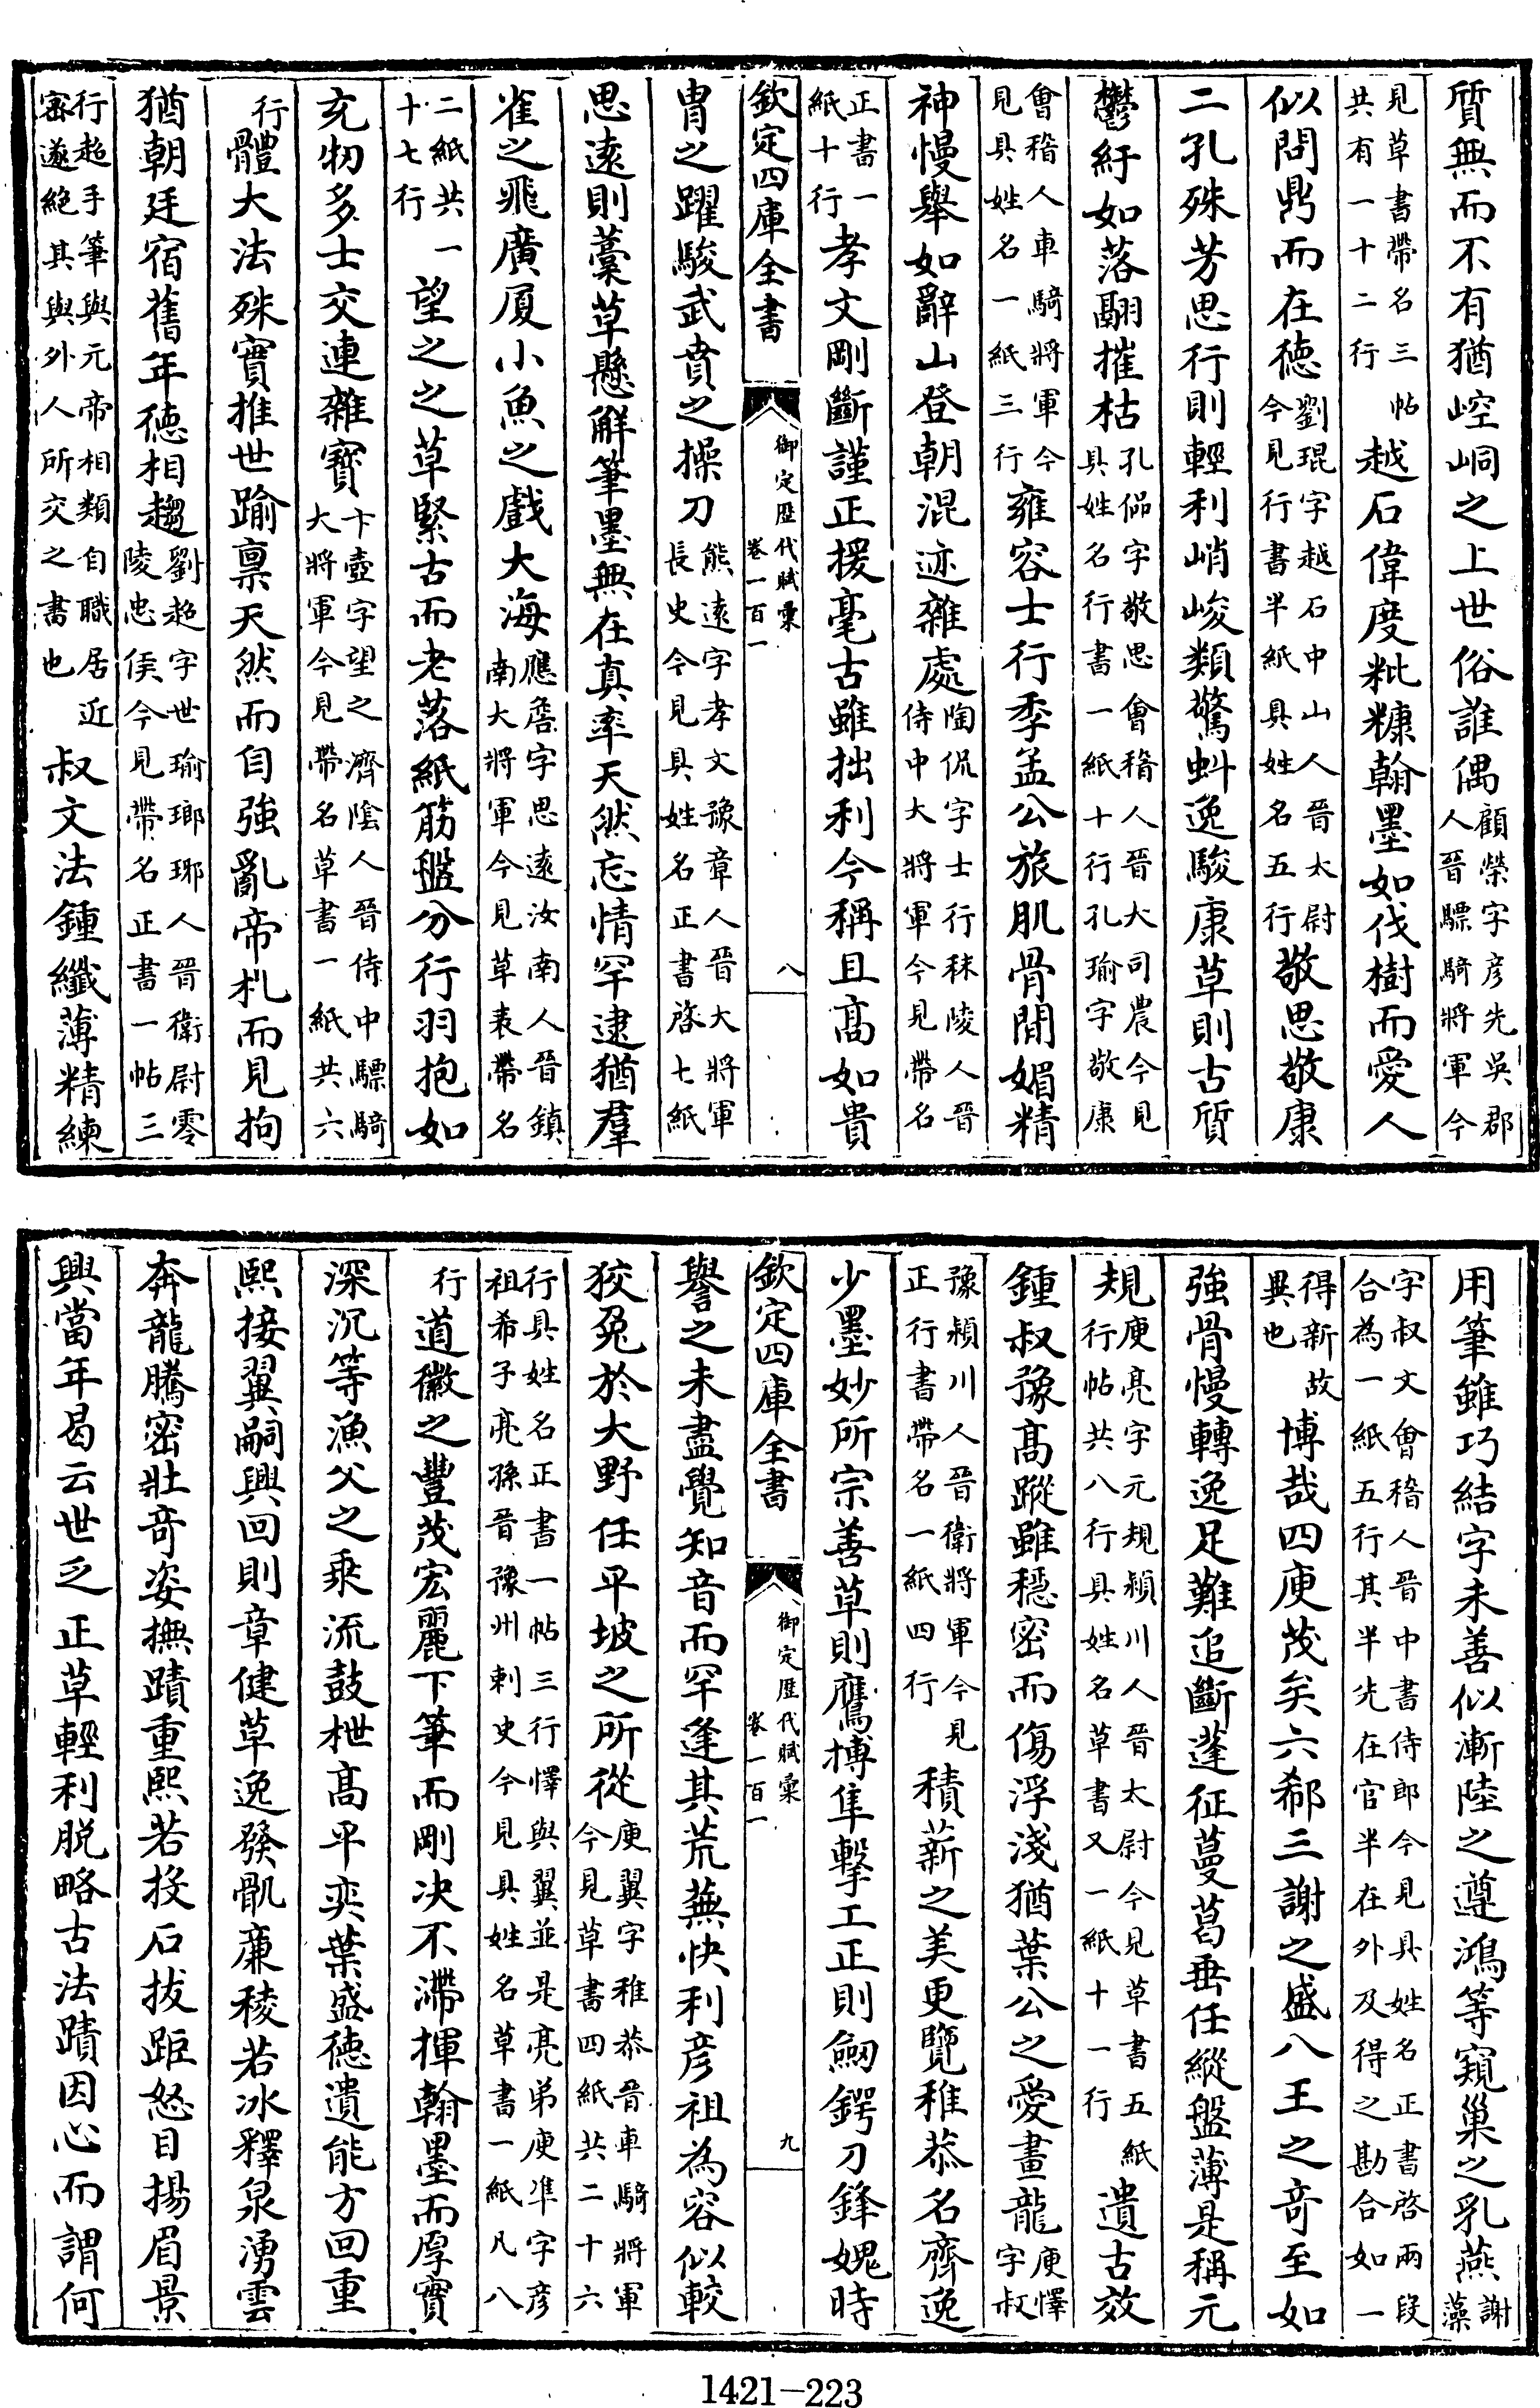 質無而不有猶崆峒之上世俗誰偶顧榮字彦先吳郡人晉驃騎將軍今
見草書帶名三帖共有一十二行越石偉度粃糠翰墨如伐樹而愛人
似問鼎而在徳劉琨字越石中山人晉太尉今見行書半紙具姓名五行敬思敬康
二孔殊芳思行則輕利峭峻類驚虯逸駿康草則古質
鬱紆如落翮摧枯孔侃字敬思會稽人晉大司農今見具姓名行書一紙十行孔瑜字敬康
會稽人車騎將軍今見具姓名一紙三行雍容士行季孟公旅肌骨閒媚精
神慢舉如辭山登朝混迹雜處陶侃字士行秣陵人晉侍中大將軍今見帶名
正書一紙十行孝文剛斷謹正援毫古雖拙利今稱且髙如貴
欽定四庫全書
御定歴代賦彙
卷一百一
八
胄之躍駿武賁之操刀熊遠字孝文豫章人晉大將軍長史今見具姓名正書啓七紙
思遠則藁草懸解筆墨無在真率天然忘情罕逮猶羣
雀之飛廣厦小魚之戲大海應詹字思遠汝南人晉鎮南大將軍今見草表帶名
二紙共一十七行望之之草緊古而老落紙筋盤分行羽抱如
充牣多士交連雜寶卞壼字望之濟陰人晉侍中驃騎大將軍今見帶名草書一紙共六
行體大法殊實推世踰稟天然而自強亂帝札而見拘
猶朝廷宿舊年徳相趨劉超字世瑜瑯琊人晉衛尉零陵忠侯今見帶名正書一帖三
行超手筆與元帝相類自職居近宻遂絶其與外人所交之書也叔文法鍾纖薄精練
用筆雖巧結字未善似漸陸之遵鴻等窺巢之乳燕謝藻
字叔文會稽人晉中書侍郎今見具姓名正書啓兩段合為一紙五行其半先在官半在外及得之勘合如一
得新故異也博哉四庾茂矣六郗三謝之盛八王之竒至如
強骨慢轉逸足難追斷蓬征蔓葛垂任縱盤薄是稱元
規庾亮字元規潁川人晉太尉今見草書五紙行帖共八行具姓名草書又一紙十一行遺古效
鍾叔豫髙蹤雖穏密而傷浮淺猶葉公之愛畫龍庾懌字叔
豫潁川人晉衛將軍今見正行書帶名一紙四行積薪之美更覽稚恭名齊逸
少墨妙所宗善草則鷹搏隼擊工正則劒鍔刀鋒媿時
欽定四庫全書
御定歴代賦彙
卷一百一
九
譽之未盡覺知音而罕逢其荒蕪快利彦祖為容似較
狡兔於大野任平坡之所從庾翼字稚恭晉車騎將軍今見草書四紙共二十六
行具姓名正書一帖三行懌與翼並是亮弟庾準字彦祖希子亮孫晉豫州刺史今見具姓名草書一紙凡八
行道徽之豐茂宏麗下筆而剛決不滯揮翰墨而厚實
深沉等漁父之乘流鼓枻髙平奕葉盛徳遺能方回重
熙接翼嗣興回則章健草逸發骪亷稜若冰釋泉湧雲
奔龍騰密壯竒姿撫蹟重熙若投石拔距怒目揚眉景
興當年曷云世乏正草輕利脱略古法蹟因心而謂何
1421-223